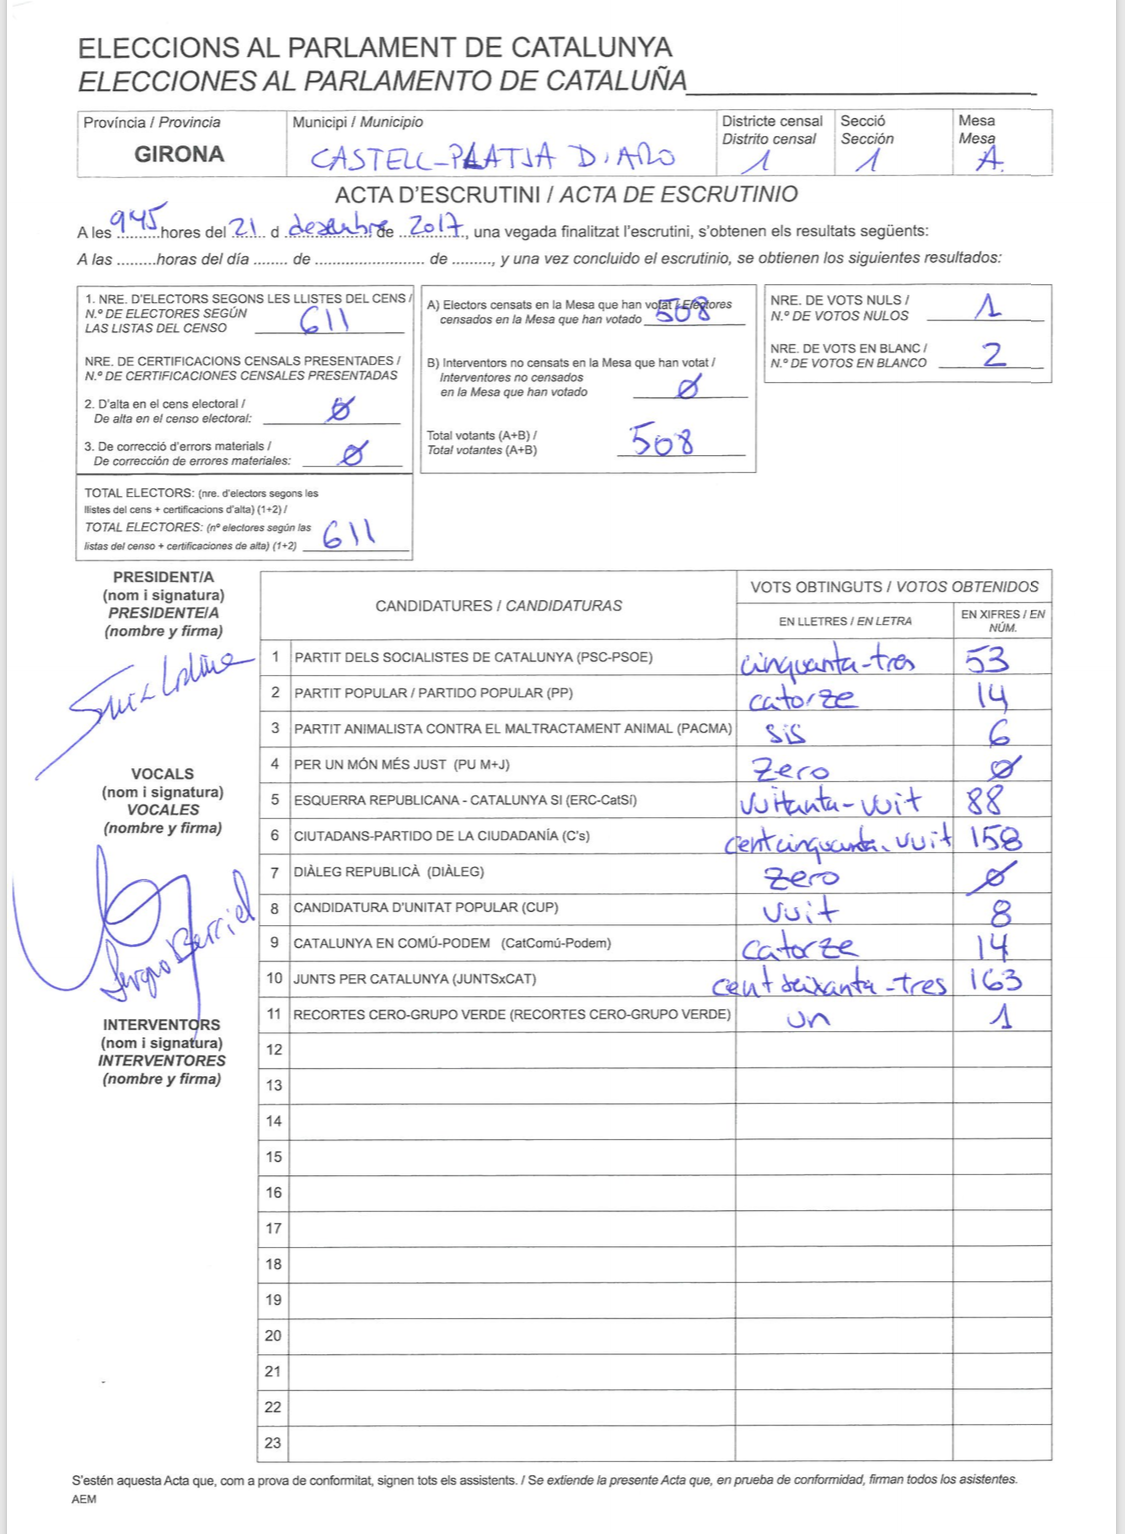 ELECCIONS AL PARLAMENT DE CATALUNYA
ELECCIONES AL PARLAMENTO DE CATALUÑA
Província / Provincia
GIRONA
Municipi / Municipio
CASTELL-PLATJA D'ARO
Districte censal
Distrito censal
1
Secció
Sección
1
Mesa
Mesa
A
ACTA D'ESCRUTINI / ACTA DE ESCRUTINIO
A les 945 hores del 21 d desembre de 2017, una vegada finalitzat l'escrutini, s'obtenen els resultats següents:
A las .........horas del día ........ de ......................... de ........., y una vez concluido el escrutinio, se obtienen los siguientes resultados:
1. NRE. D'ELECTORS SEGONS LES LLISTES DEL CENS /
N.º DE ELECTORES SEGÚN
LAS LISTAS DEL CENSO 611
NRE. DE CERTIFICACIONS CENSALS PRESENTADES /
N.º DE CERTIFICACIONES CENSALES PRESENTADAS
2. D'alta en el cens electoral /
De alta en el censo electoral: 0
3. De correcció d'errors materials /
De corrección de errores materiales: 0
TOTAL ELECTORS: (nre. d'electors segons les
llistes del cens + certificacions d'alta) (1+2) /
TOTAL ELECTORES: (nº electores según las
listas del censo + certificaciones de alta) (1+2) 611
A) Electors censats en la Mesa que han votat / Electores
censados en la Mesa que han votado 508
B) Interventors no censats en la Mesa que han votat /
Interventores no censados
en la Mesa que han votado 0
Total votants (A+B) /
Total votantes (A+B) 508
NRE. DE VOTS NULS /
N.º DE VOTOS NULOS 1
NRE. DE VOTS EN BLANC /
N.º DE VOTOS EN BLANCO 2
PRESIDENT/A
(nom i signatura)
PRESIDENTE/A
(nombre y firma)
VOCALS
(nom i signatura)
VOCALES
(nombre y firma)
Sergio Berriel
INTERVENTORS
(nom i signatura)
INTERVENTORES
(nombre y firma)
CANDIDATURES / CANDIDATURAS
VOTS OBTINGUTS / VOTOS OBTENIDOS
EN LLETRES / EN LETRA
EN XIFRES / EN NÚM.
1 PARTIT DELS SOCIALISTES DE CATALUNYA (PSC-PSOE) cinquanta-tres 53
2 PARTIT POPULAR / PARTIDO POPULAR (PP) catorze 14
3 PARTIT ANIMALISTA CONTRA EL MALTRACTAMENT ANIMAL (PACMA) sis 6
4 PER UN MÓN MÉS JUST (PU M+J) zero 0
5 ESQUERRA REPUBLICANA - CATALUNYA SI (ERC-CatSí) vuitanta-vuit 88
6 CIUTADANS-PARTIDO DE LA CIUDADANÍA (C's) cent cinquanta-vuit 158
7 DIÀLEG REPUBLICÀ (DIÀLEG) zero 0
8 CANDIDATURA D'UNITAT POPULAR (CUP) vuit 8
9 CATALUNYA EN COMÚ-PODEM (CatComú-Podem) catorze 14
10 JUNTS PER CATALUNYA (JUNTSxCAT) cent seixanta-tres 163
11 RECORTES CERO-GRUPO VERDE (RECORTES CERO-GRUPO VERDE) un 1
12
13
14
15
16
17
18
19
20
21
22
23
S'estén aquesta Acta que, com a prova de conformitat, signen tots els assistents. / Se extiende la presente Acta que, en prueba de conformidad, firman todos los asistentes.
AEM